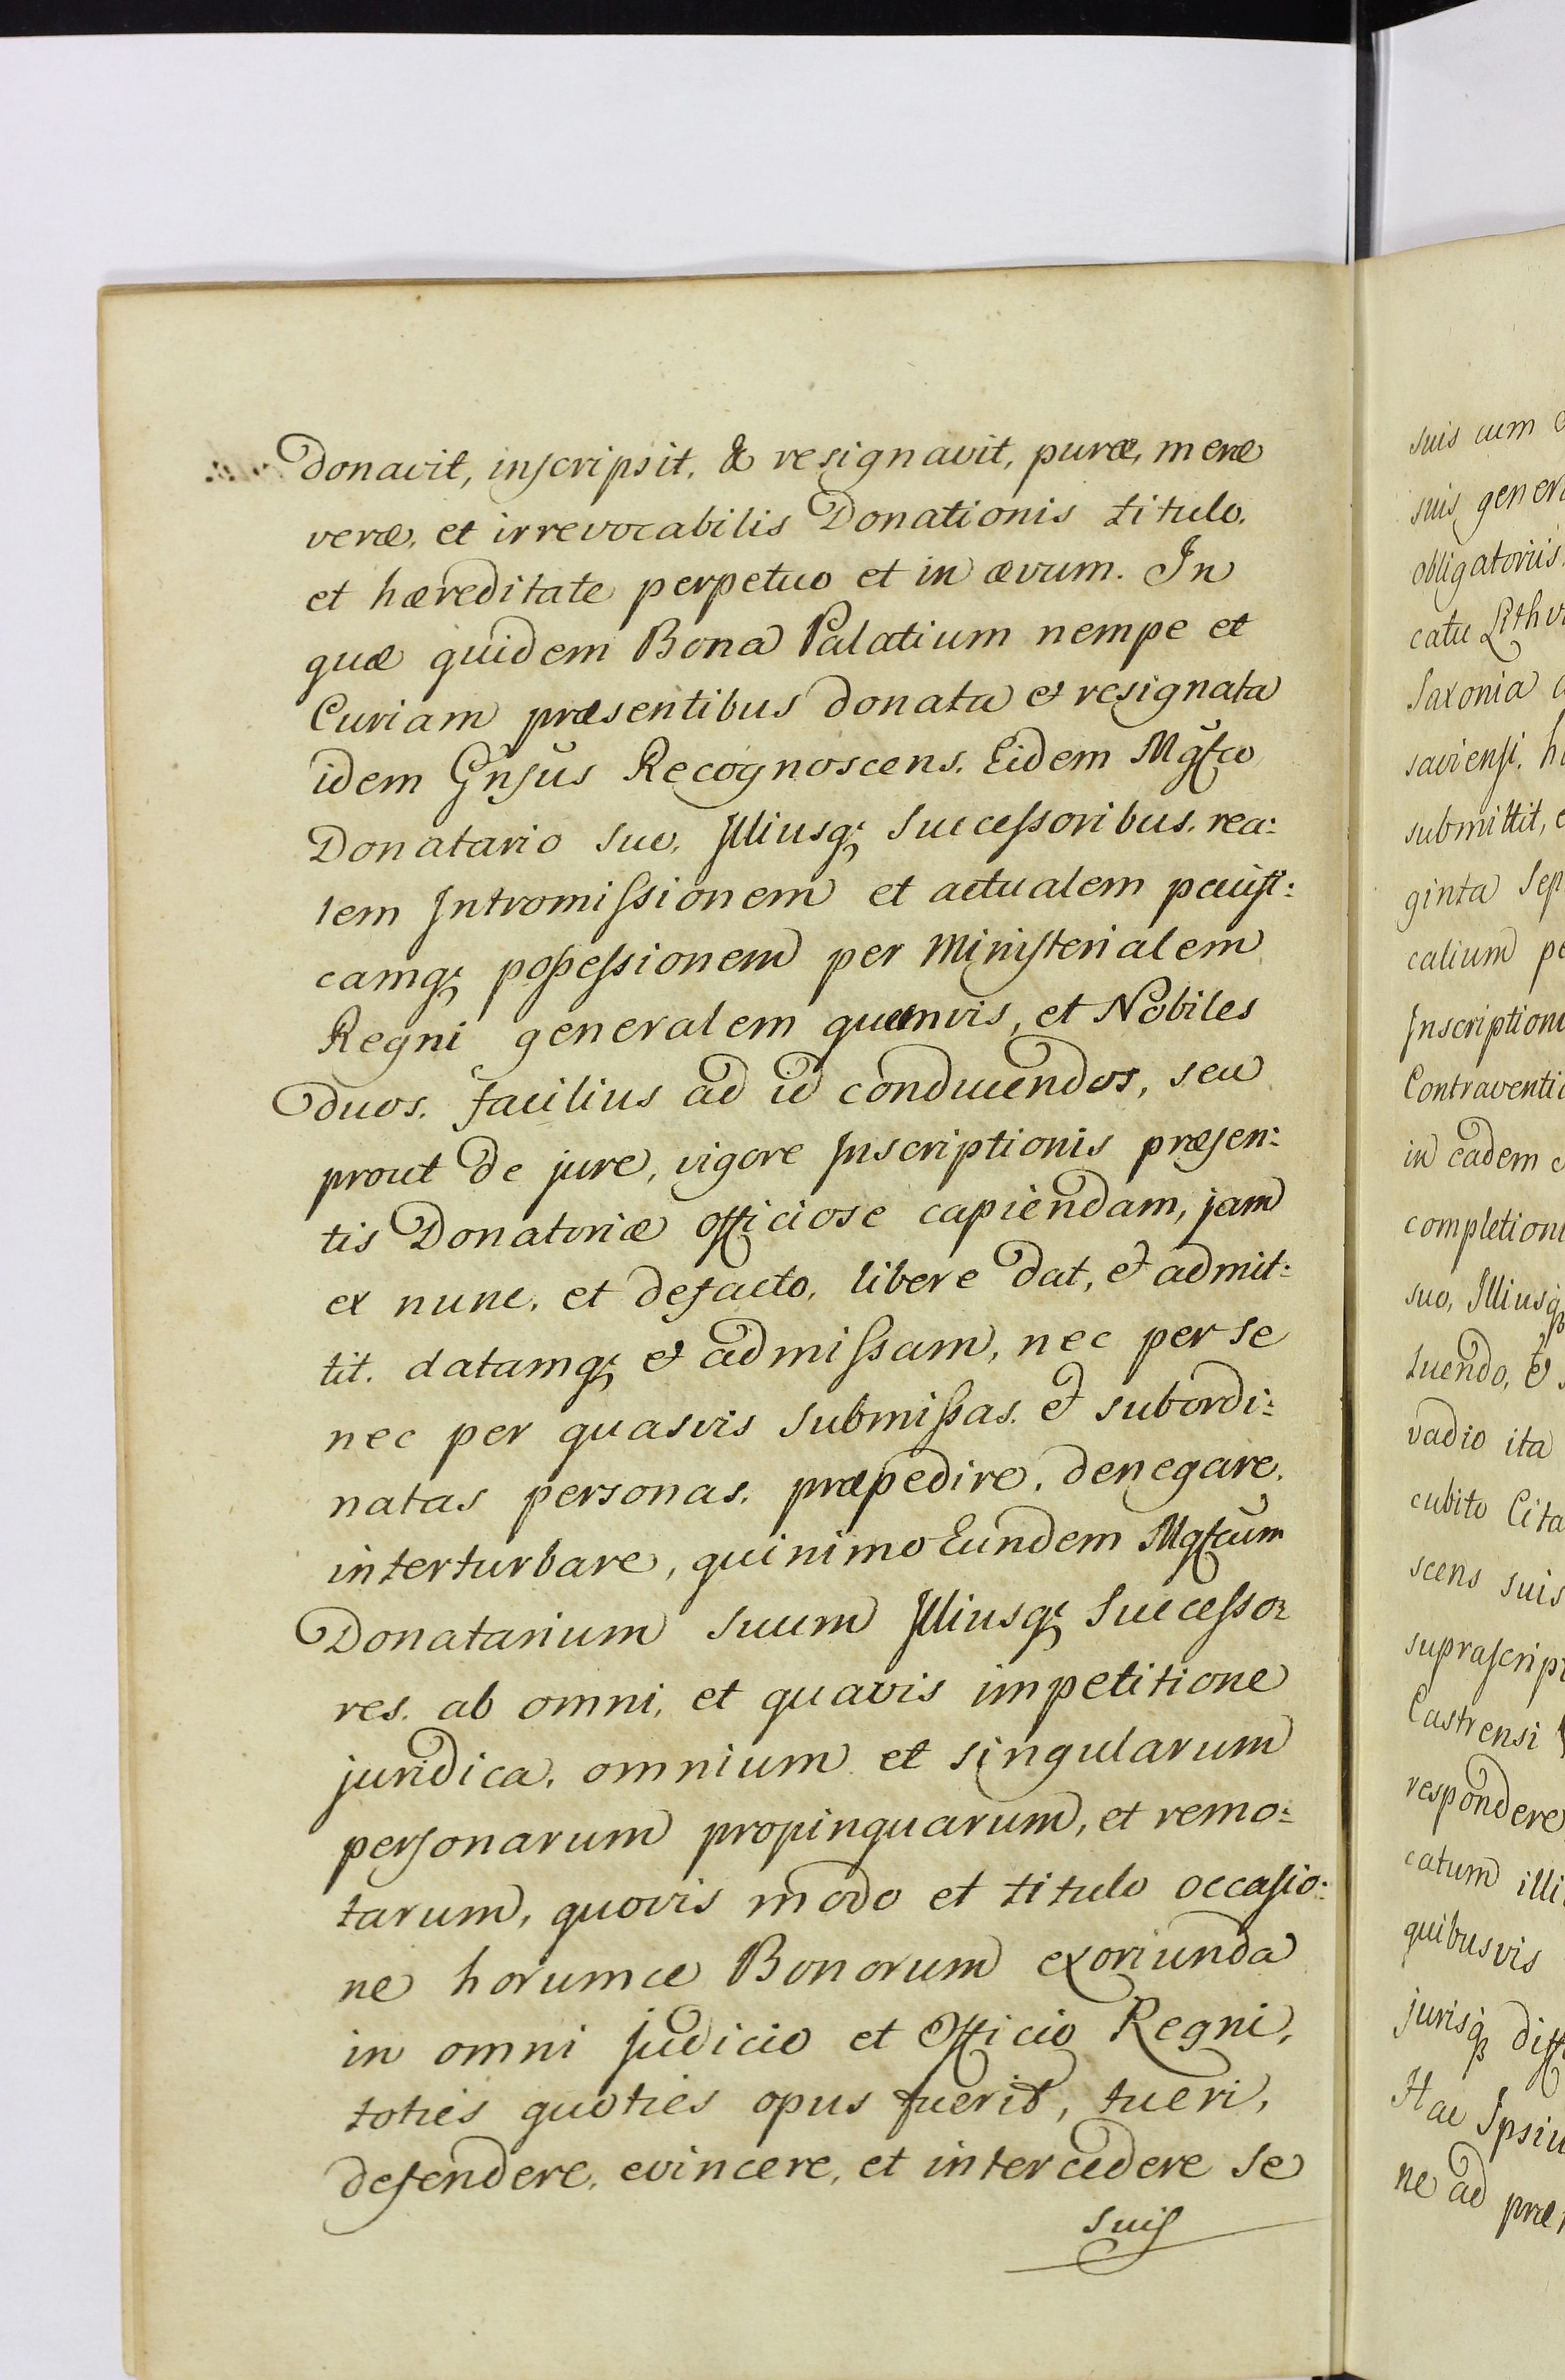 donavit, inscripsit, & resignavit, puræ, meræ
veræ, et irrevocabilis Donationis titulo,
et hæreditate perpetuo et in ævum. In
quæ quidem Bona Palatium nempe et
Curiam præsentibus donata et resignata
idem Gnsus Recognoscens, Eidem Mgfco
Donatario suo, Illiusq; Successoribus, rea:
lem Intromissionem et actualem pacifi:
camq; possessionem per Ministerialem
Regni generalem quemvis, et Nobiles
duos, facilius ad id conducendos, seu
prout de jure, vigore Inscriptionis præsen:
tis Donatoriæ officiose capiendam, jam
ex nunc, et defacto, libere dat, et admit:
tit. datamq; et admissam, nec per se
nec per quasvis submissas, et subordi:
natas personas, præpedire, denegare,
interturbare, quinimo Eundem Mgfcum
Donatarium suum Illiusq; Successo:
res, ab omni, et quavis impetitione
juridica, omnium et singularum
personarum propinquarum, et remo:
tarum, quovis modo et titulo occasio:
ne horumce Bonorum exoriunda
in omni Judicio et Officio Regni,
toties quoties opus fuerit, tueri,
defendere, evincere, et intercedere se
suis
suis cum
suis gener
obligatoriis
catu Lithv
Saxonia
saviensi, h
submittit, e
ginta Sep
calium pe
Inscription
Contraventi
in eadem c
completion
suo, Illiusq;
luendo, et
vadio ita
cubito Cita
scens suis
suprascrip
Castrensi
respondere
catum illi
quibusvis
jurisq; diff
Hac Ipsiu
ne ad præ